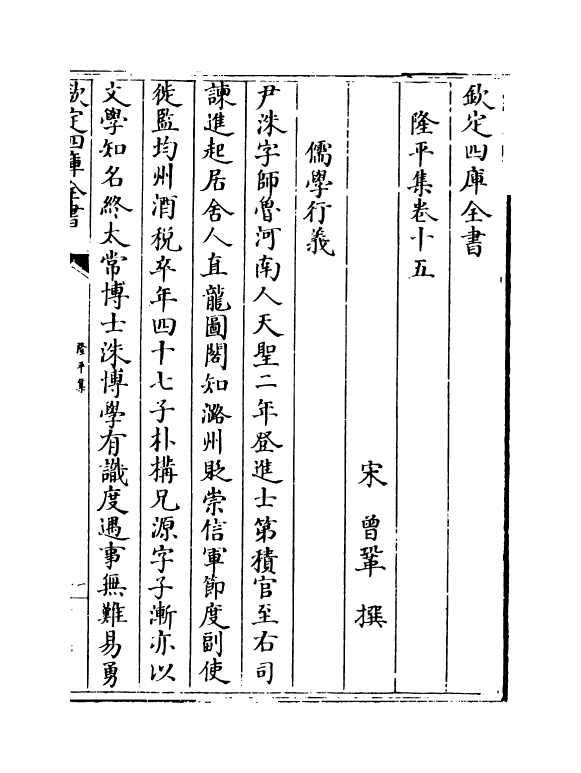 欽定四庫全書
隆平集卷十五
宋 曾鞏 撰
儒學行義
尹洙字師魯河南人天聖二年登進士第積官至右司
諫進起居舍人直龍圖閣知潞州貶崇信軍節度副使
徙監均州酒稅卒年四十七子朴構兄源字子漸亦以
文學知名終太常博士洙博學有識度遇事無難易勇
欽定四庫全書
隆平集